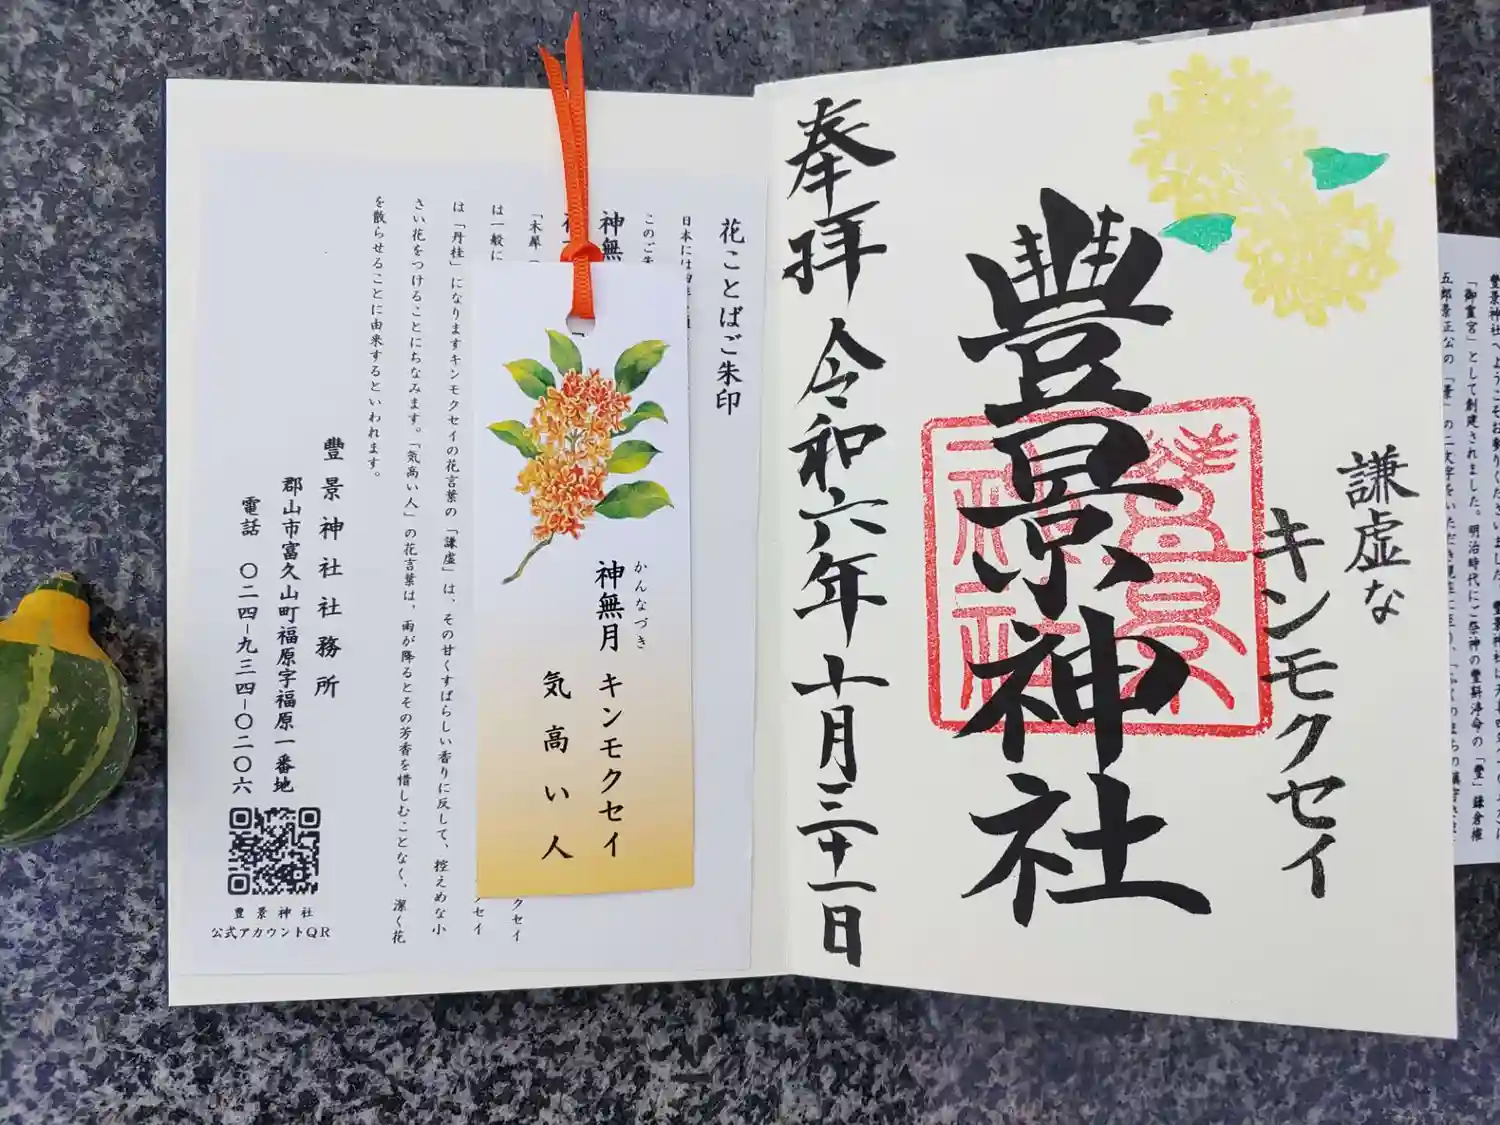 謙虚な
キンモクセイ
豊景神社
奉拝 令和六年十月三十一日
花ことばご朱印
日本には
このご朱
神無
「木犀
は一般に
クセイ
クセイ
は「丹桂」になりますキンモクセイの花言葉の「謙虚」は、その甘くすばらしい香りに反して、控えめな小
さい花をつけることにちなみます。「気高い人」の花言葉は、雨が降るとその芳香を惜しむことなく、潔く花
を散らせることに由来するといわれます。
豊景神社社務所
郡山市富久山町福原字福原一番地
電話 〇二四-九三四-〇二〇六
豊景神社
公式アカウントQR
かんなづき
神無月 キンモクセイ
気高い人
豊景神社へようこそお参りくださいました。豊景神社は
「御霊宮」として創建されました。明治時代にご祭神の豊斟渟命の「豊」鎌倉権
五郎景正公の「景」の二文字をいただき現在に至り、